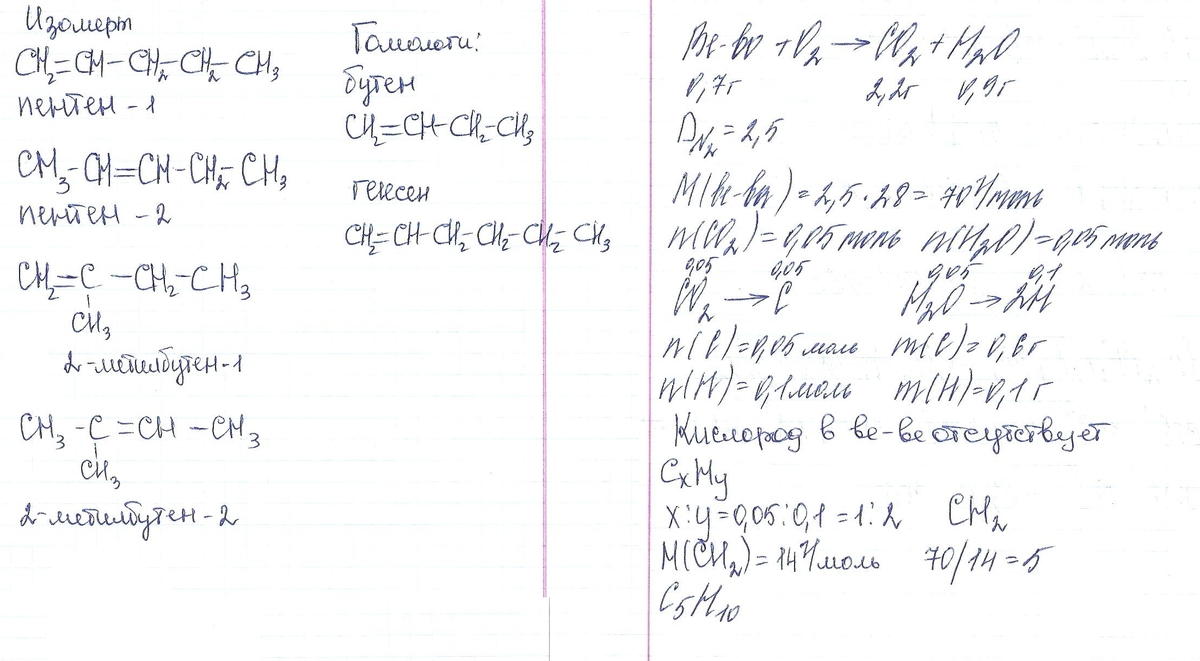 Изомеры
CH₂=CH-CH₂-CH₂-CH₃
пентен-1
CH₃-CH=CH-CH₂-CH₃
пентен-2
CH₂=C-CH₂-CH₃
CH₃
2-метилбутен-1
CH₃-C=CH-CH₃
CH₃
2-метилбутен-2
Гомологи:
бутен
CH₂=CH-CH₂-CH₃
гексен
CH₂=CH-CH₂-CH₂-CH₂-CH₃
Ве-во + O₂ → CO₂ + H₂O
0,7г 2,2г 0,9г
D_N₂ = 2,5
M(ве-ва) = 2,5·28 = 70г/моль
n(CO₂) = 0,05моль n(H₂O) = 0,05моль
0,05 0,05 0,05 0,1
CO₂ → C H₂O → 2H
n(C) = 0,05моль m(C) = 0,6г
n(H) = 0,1моль m(H) = 0,1г
Кислород в ве-ве отсутствует
CxHy
x:y = 0,05:0,1 = 1:2 CH₂
M(CH₂) = 14г/моль 70/14 = 5
C₅H₁₀